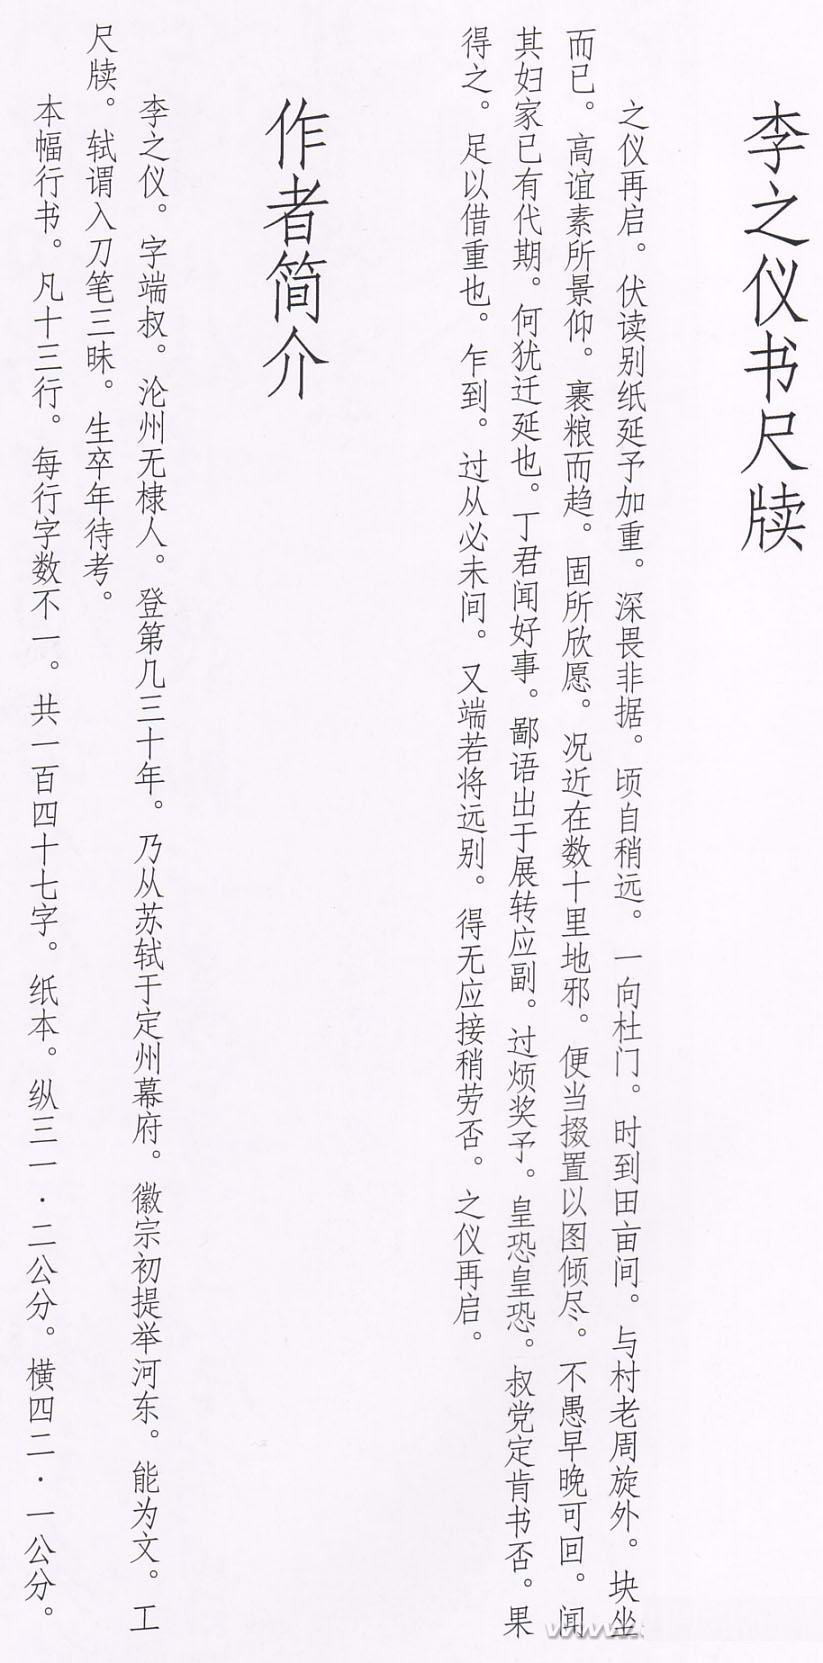 李之仪书尺牍
之仪再启。伏读别纸延予加重。深畏非据。顷自稍远。一向杜门。时到田亩间。与村老周旋外。块坐
而已。高谊素所景仰。裹粮而趋。固所欣愿。况近在数十里地邪。便当掇置以图倾尽。不愚早晚可回。闻
其妇家已有代期。何犹迁延也。丁君闻好事。鄙语出于展转应副。过烦奖予。皇恐皇恐。叔党定肯书否。果
得之。足以借重也。乍到。过从必未间。又端若将远别。得无应接稍劳否。之仪再启。
作者简介
李之仪。字端叔。沦州无棣人。登第几三十年。乃从苏轼于定州幕府。徽宗初提举河东。能为文。工
尺牍。轼谓入刀笔三昧。生卒年待考。
本幅行书。凡十三行。每行字数不一。共一百四十七字。纸本。纵三一·二公分。横四二·一公分。